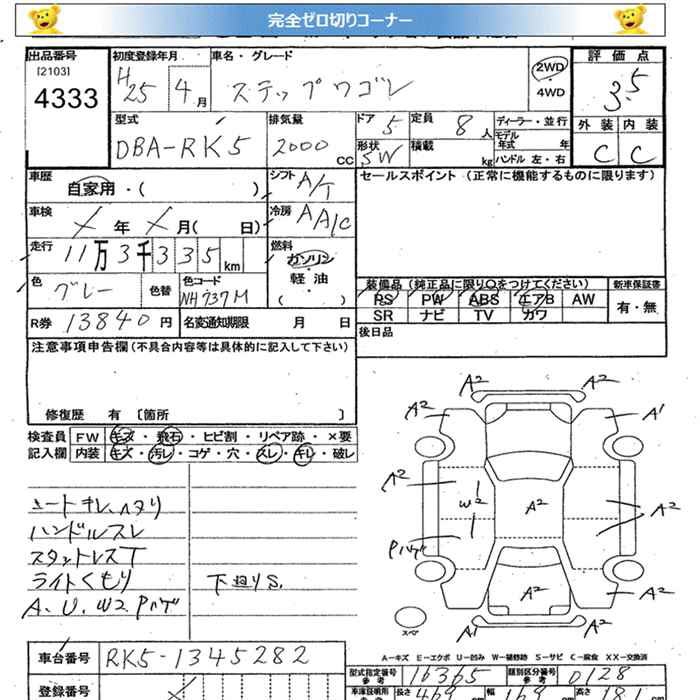 完全ゼロ切りコーナー
出品番号 初度登録年月 車名・グレード 評価点
[2103] 4333 H25 4月 ステップワゴン 2WD 4WD 3.5
型式 排気量 ドア 5 定員 8人 ディーラー・並行 外装 内装
DBA-RK5 2000cc 形状 SW 積載 kg モデル年式 年 ハンドル 左・右 C C
車歴 自家用・( ) シフト A/T セールスポイント (正常に機能するものに限ります)
車検 X年X月( 日) 冷房 AA/C
走行 11万3千335km 燃料 ガソリン・軽油 ( )
色 グレー 色替 色コード NH737M 装備品 (純正品に限り○をつけてください) 新車保証書
PS PW ABS エアB AW 有・無
SR ナビ TV カワ
R券 13840円 名変通知期限 月 日 後日品
注意事項申告欄(不具合内容等は具体的に記入して下さい)
修復歴 有 [箇所 ]
検査員 FW キズ・飛石・ヒビ割・リペア跡・×要
記入欄 内装 キズ・汚レ・コゲ・穴・スレ・キレ・破レ
シートキレ、ヘタリ
ハンドルスレ
スタットレスT
ライトくもり 下廻りS.
A、U、W2 Pハゲ
A2 A2
A2 A1
A2 W2 A2 A2
Pハゲ
A2 A2
スペア A1 A2
A-キズ E-エクボ U-凹み W-補修跡 S-サビ C-腐食 XX-交換済
車台番号 RK5-1345282
型式指定番号 参考 16365 類別区分番号 参考 0128
登録番号 車庫証明用 長さ 469 幅 169 高さ 181